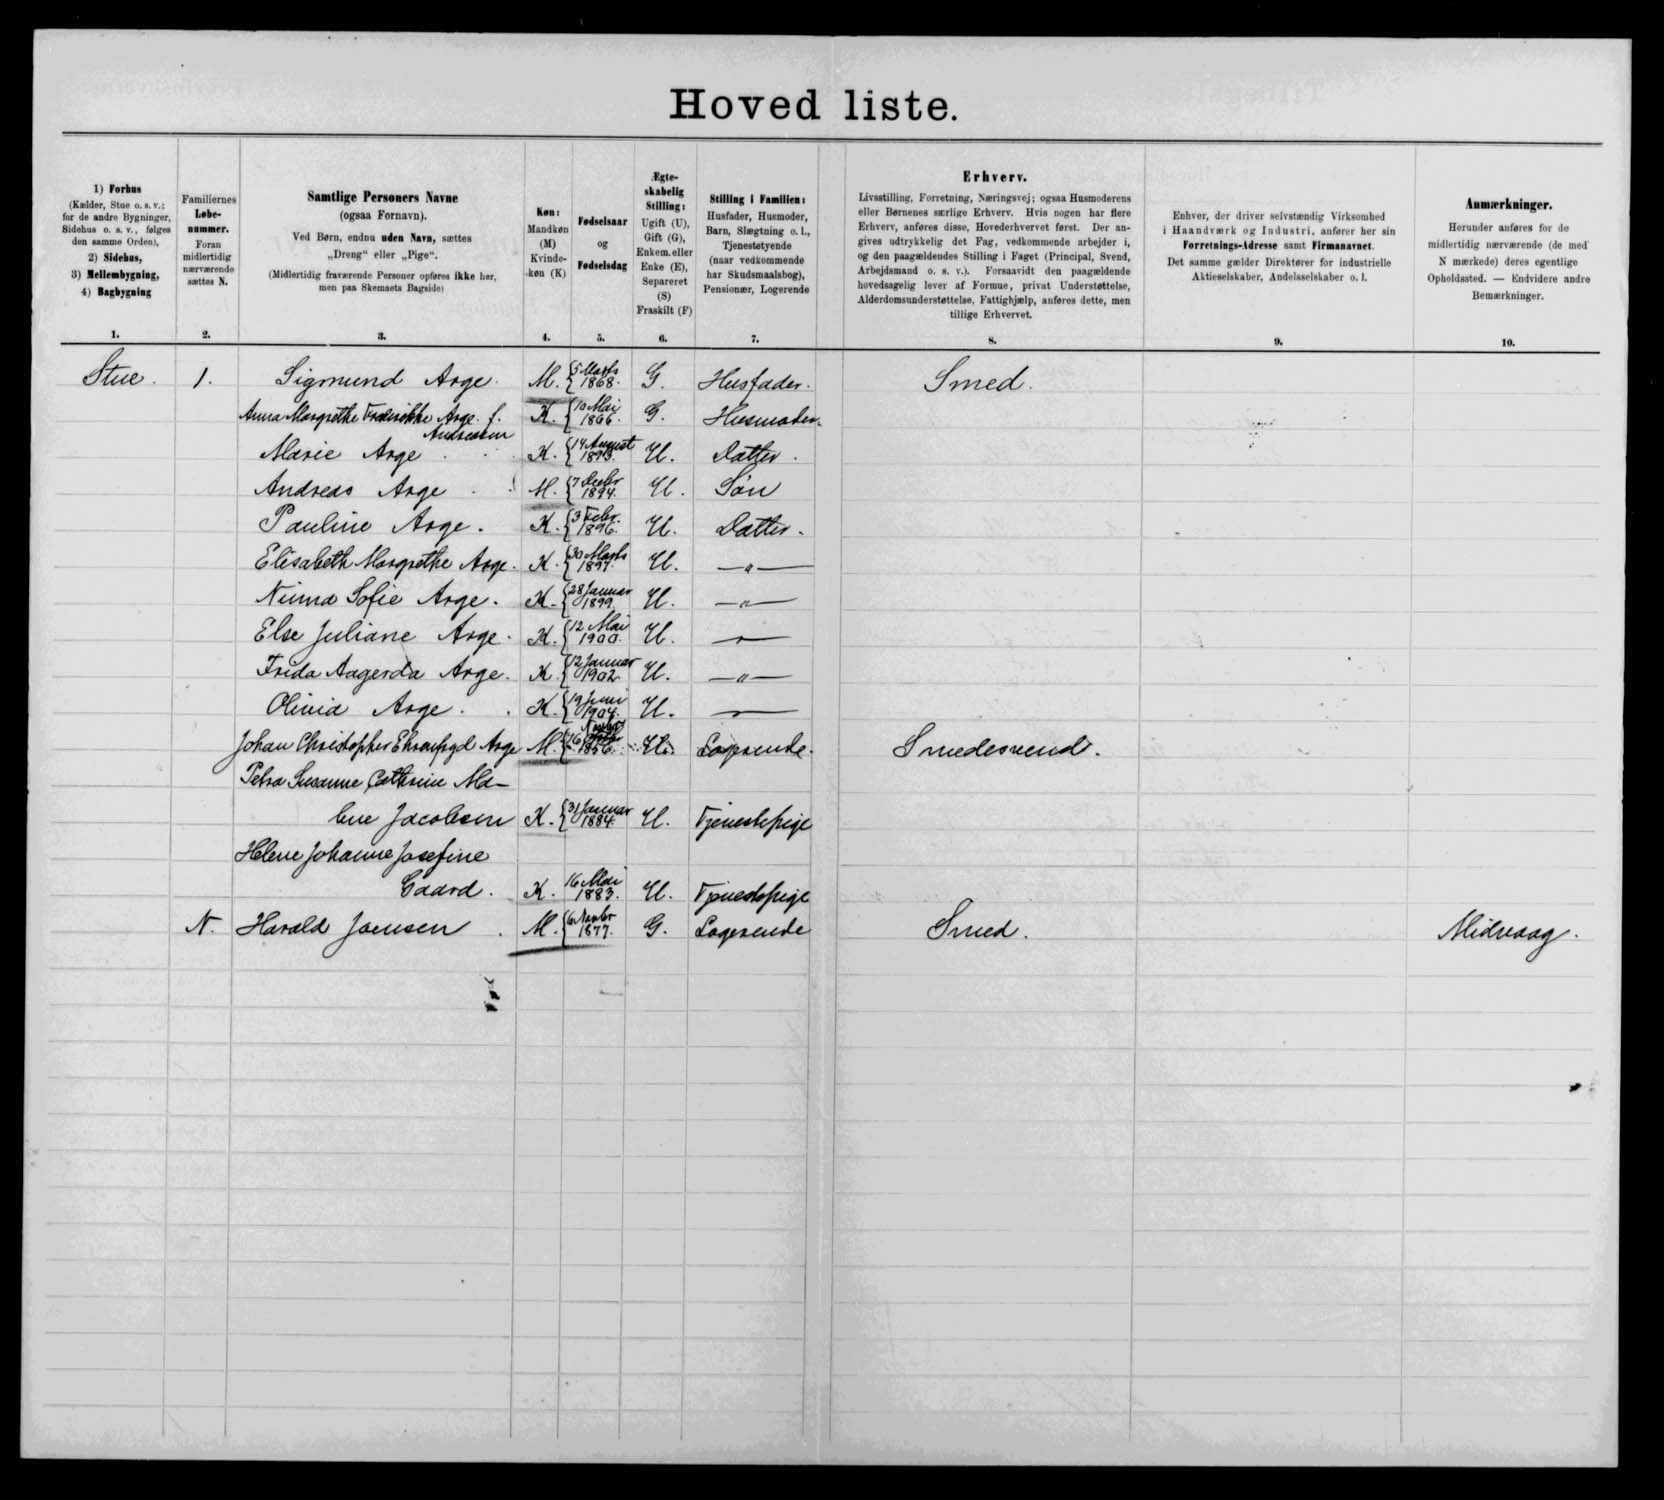 Hoved liste.
1) Forhus
(Kælder, Stue o. s. v.;
for de andre Bygninger,
Sidehus o. s. v., følges
den samme Orden),
2) Sidehus,
3) Mellembygning,
4) Bagbygning
1.
Familiernes
Løbe-
nummer.
Foran
midlertidig
nærværende
sættes N.
2.
Samtlige Personers Navne
(ogsaa Fornavn).
Ved Børn, endnu uden Navn, sættes
„Dreng“ eller „Pige“.
(Midlertidig fraværende Personer opføres ikke her,
men paa Skemaets Bagside)
3.
Køn:
Mandkøn
(M)
Kvinde-
køn (K)
4.
Fødselsaar
og
Fødselsdag
5.
Ægte-
skabelig
Stilling:
Ugift (U),
Gift (G),
Enkem. eller
Enke (E),
Separeret
(S)
Fraskilt (F)
6.
Stilling i Familien:
Husfader, Husmoder,
Barn, Slægtning o. l.,
Tjenestetyende
(naar vedkommende
har Skudsmaalsbog),
Pensionær, Logerende
7.
Erhverv.
Livsstilling, Forretning, Næringsvej; ogsaa Husmoderens
eller Børnenes særlige Erhverv. Hvis nogen har flere
Erhverv, anføres disse, Hovederhvervet først. Der an-
gives udtrykkelig det Fag, vedkommende arbejder i,
og den paagældendes Stilling i Faget (Principal, Svend,
Arbejdsmand o. s. v.). Forsaavidt den paagældende
hovedsagelig lever af Formue, privat Understøttelse,
Alderdomsunderstøttelse, Fattighjælp, anføres dette, men
tillige Erhvervet.
8.
Enhver, der driver selvstændig Virksomhed
i Haandværk og Industri, anfører her sin
Forretnings-Adresse samt Firmanavnet.
Det samme gælder Direktører for industrielle
Aktieselskaber, Andelsselskaber o. l.
9.
Anmærkninger.
Herunder anføres for de
midlertidig nærværende (de med
N mærkede) deres egentlige
Opholdssted. — Endvidere andre
Bemærkninger.
10.
Stue. 1. Sigmund Arge. M. 5 Marts 1868. G. Husfader. Smed.
Anna Margrethe Frederikke Arge. f. Andreasen K. 10 Mai 1866. G. Husmoder.
Marie Arge K. 14 August 1893. U. Datter.
Andreas Arge M. 7 Decbr 1894. U. Søn
Pauline Arge. K. 3 Febr. 1896. U. Datter.
Elisabeth Margrethe Arge. K. 30 Marts 1897. U. —"—
Nima Sofie Arge. K. 28 Januar 1899 U. —"—
Else Juliane Arge. K. 12 Mai 1900. U. —
Frida Aagerda Arge. K. 12 Januar 1902 U. —"—
Olivia Arge. K. 19 Juni 1904. U. —
Johan Christopher Arge M. 16 U. Logerende. Smedesvend.
Petra Susanne Cathrine Ma-
lene Jacobsen K. 31 Januar 1884. U. Tjenestepige
Helene Johanne Josefine
Gaard. K. 16 Mai 1883. U. Tjenestepige
N. Harald Joensen M. 6 Novbr 1877. G. Logerende Smed. Midvaag.